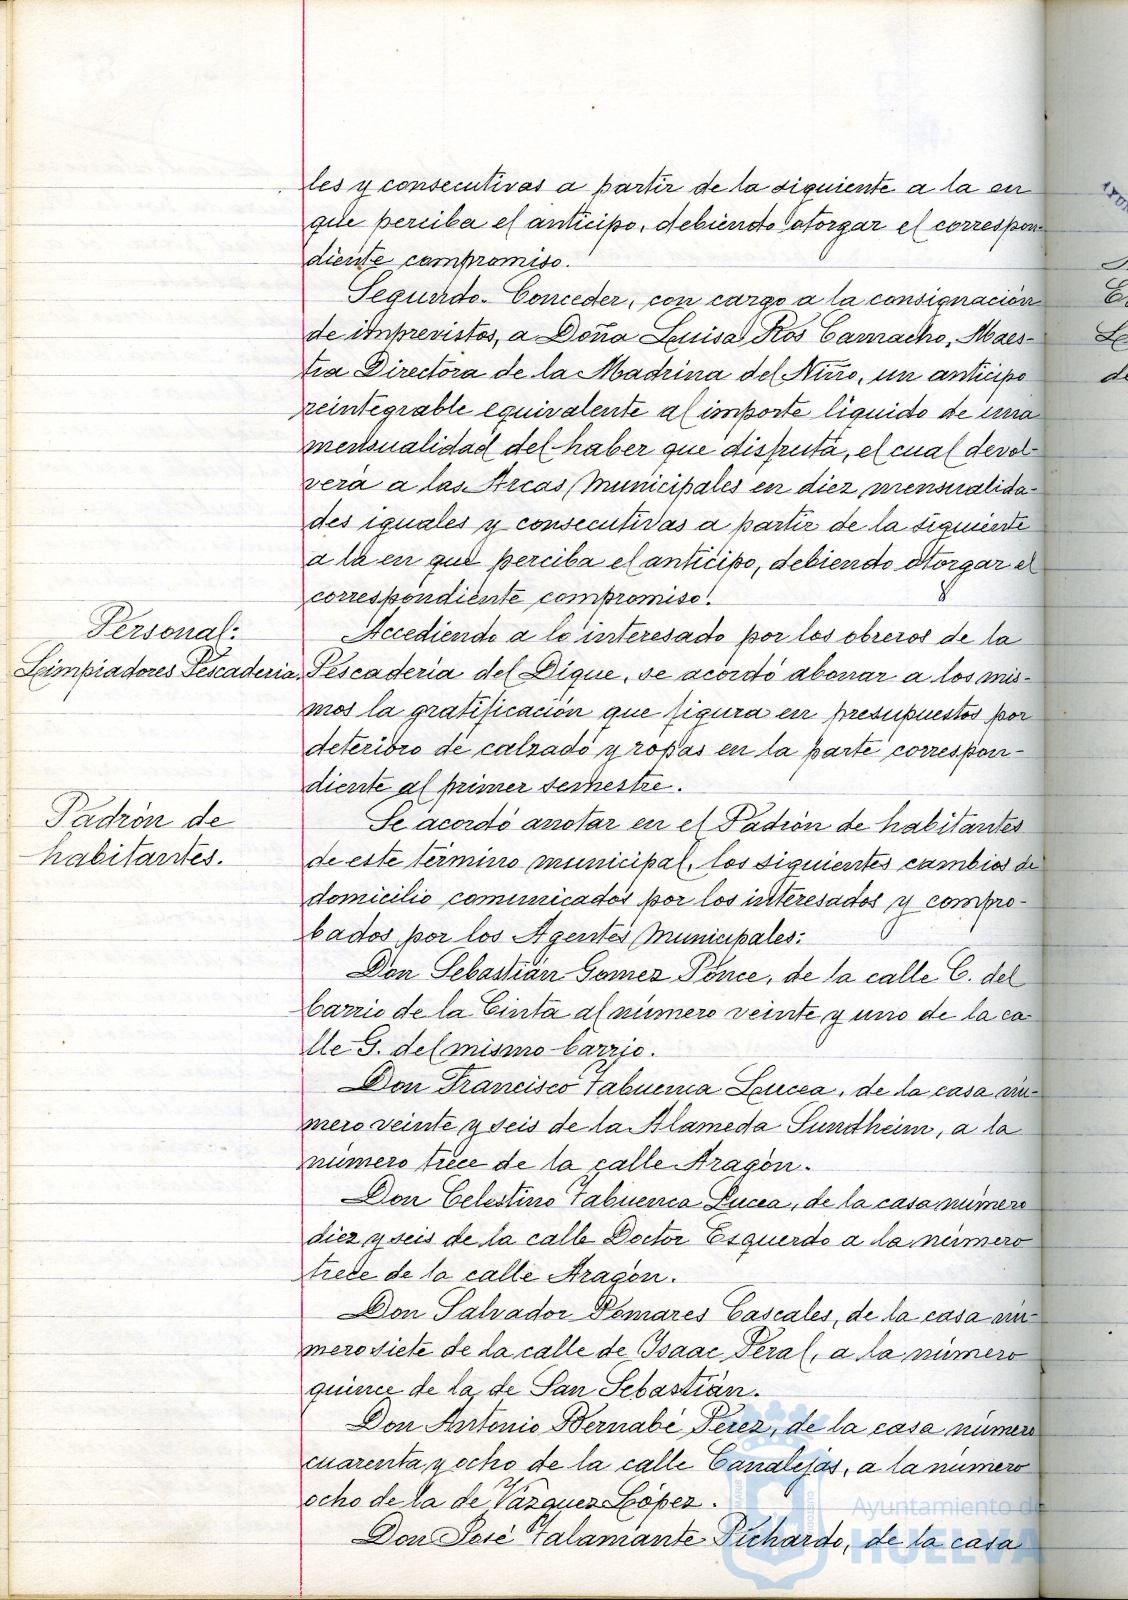 les y consecutivas a partir de la siguiente a la en
que perciba el anticipo, debiendo otorgar el correspon-
diente compromiso.
Segundo.- Conceder, con cargo a la consignación
de imprevistos, a Doña Luisa Ros Camacho, Maes-
tra Directora de la Madrina del Niño, un anticipo
reintegrable equivalente al importe líquido de una
mensualidad del haber que disfruta, el cual devol-
verá a las Arcas Municipales en diez mensualida-
des iguales y consecutivas a partir de la siguiente
a la en que perciba el anticipo, debiendo otorgar el
correspondiente compromiso.
Personal:
Limpiadores Pescadería.
Accediendo a lo interesado por los obreros de la
Pescadería del Dique, se acordó abonar a los mis-
mos la gratificación que figura en presupuestos por
deterioro de calzado y ropas en la parte correspon-
diente al primer semestre.
Padrón de
habitantes.
Se acordó anotar en el Padrón de habitantes
de este término municipal, los siguientes cambios de
domicilio comunicados por los interesados y compro-
bados por los Agentes Municipales:
Don Sebastián Gomez Ponce, de la calle C. del
barrio de la Cinta al número veinte y uno de la ca-
lle G. del mismo barrio.
Don Francisco Tabuenca Lucea, de la casa nú-
mero veinte y seis de la Alameda Sundheim, a la
número trece de la calle Aragón.
Don Celestino Tabuenca Lucea, de la casa número
diez y seis de la calle Doctor Esquerdo a la número
trece de la calle Aragón.
Don Salvador Pomares Cascales, de la casa nú-
mero siete de la calle de Isaac Peral, a la número
quince de la de San Sebastián.
Don Antonio Bernabé Perez, de la casa número
cuarenta y ocho de la calle Canalejas, a la número
ocho de la de Vázquez López.
Don José Talamante Pichardo, de la casa
Ayuntamiento de
HUELVA